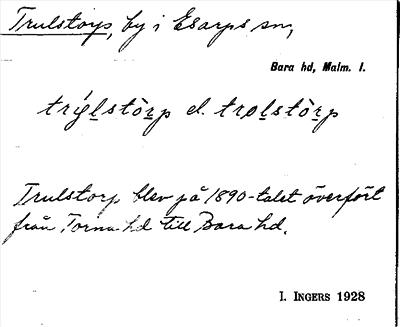 Trulstorp, by i Esarps sn,
Bara hd, Malm. l.
el.
Trulstorp blev på 1890-talet överfört
från Torna hd till Bara hd.
I. INGERS 1928